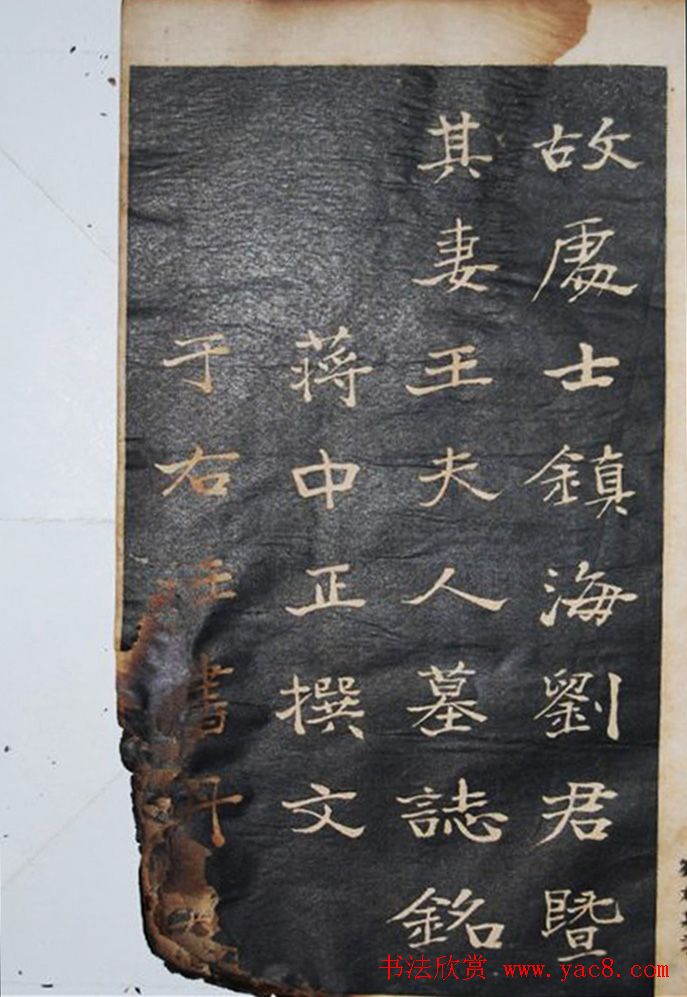 故處士鎮海劉君暨
其妻王夫人墓誌銘
蔣中正撰文
于右任書丹
书法欣赏 www.yac8.com